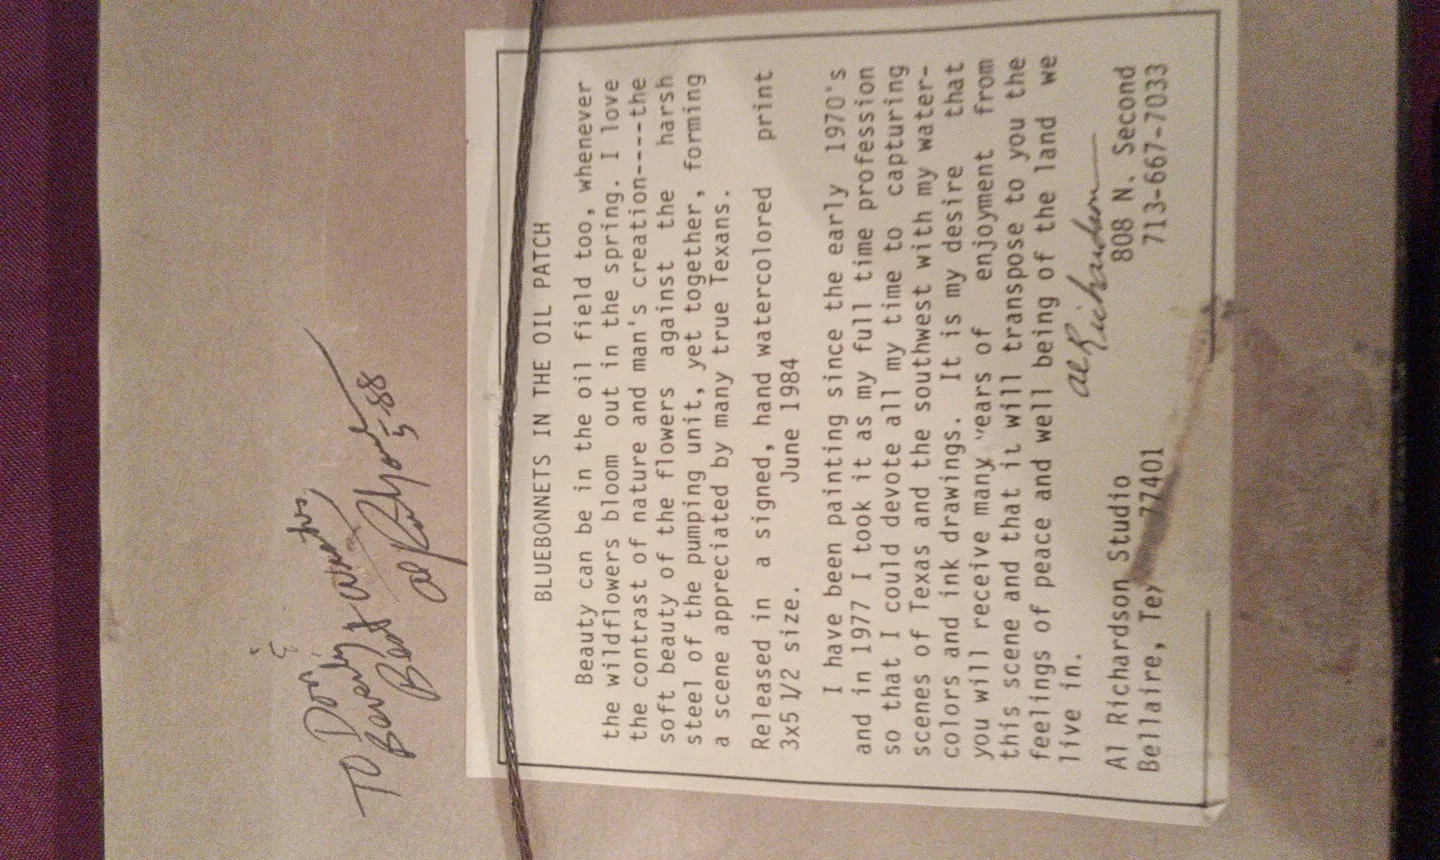 To Don &
Beverly
Best
Al Richardson
5-88
BLUEBONNETS IN THE OIL PATCH
Beauty can be in the oil field too, whenever
the wildflowers bloom out in the spring. I love
the contrast of nature and man's creation----the
soft beauty of the flowers against the harsh
steel of the pumping unit, yet together, forming
a scene appreciated by many true Texans.
Released in a signed, hand watercolored print
3x5 1/2 size. June 1984
I have been painting since the early 1970's
and in 1977 I took it as my full time profession
so that I could devote all my time to capturing
scenes of Texas and the southwest with my water-
colors and ink drawings. It is my desire that
you will receive many years of enjoyment from
this scene and that it will transpose to you the
feelings of peace and well being of the land we
live in.
Al Richardson
Al Richardson Studio 808 N. Second
Bellaire, Tex 77401 713-667-7033